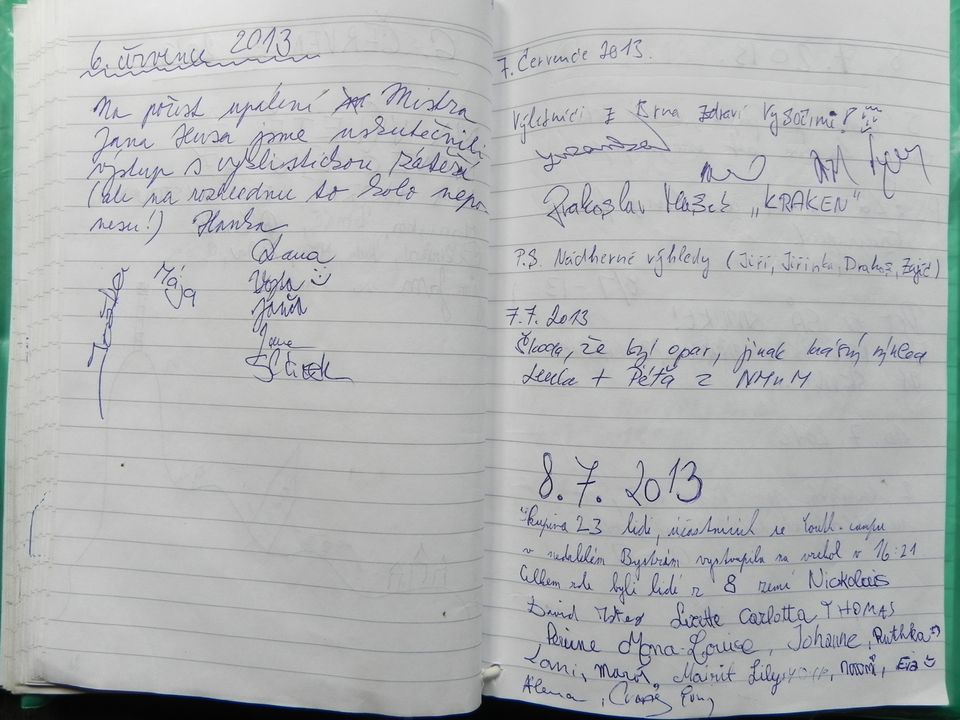 6. července 2013
Na počest upálení Mistra
Jana Husa jsme uskutečnili
výstup s cyklistickou zátěží
(ale na rozhlednu to kolo nepo-
nesu!) Hanka
Dana
Vojta
Jana
Mája
7. Července 2013.
Výletníci z Brna zdraví Vysočinu!
Drakoslav "KRAKEN"
P.S. Nádherné výhledy (Jiří, Jiřinka, Drakoš, Zajíč)
7.7. 2013
Škoda, že byl opar, jinak krásný výhled
Lenka + Péťa z NMnM
8.7. 2013
Skupina 23 lidí, účastnících se Youth-campu
v nedalekém Bystrém vystoupila na vrchol v 16:21
Celkem zde byli lidé z 8 zemí Nickolais
David Lisette Carlotta THOMAS
Perinne Mona-Louise, Johanne, Ruthka
Lani, Maroš, Mairit Lily, noomi, Eva
Alena,